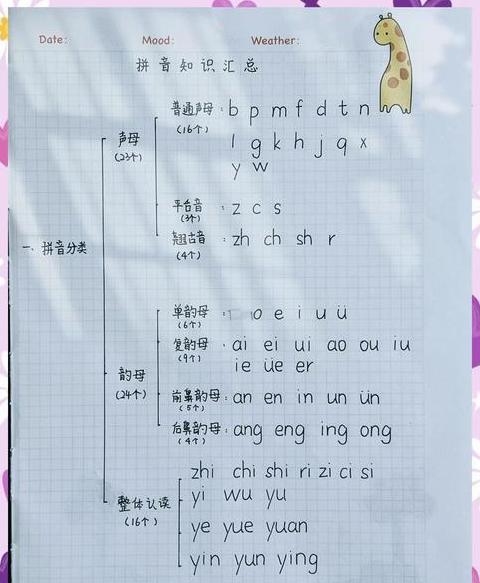 Date: Mood: Weather:
拼音知识汇总
一、拼音分类
声母
(23个)
普通声母: b p m f d t n
(16个)
l g k h j q x
y w
平舌音: z c s
(3个)
翘舌音: zh ch sh r
(4个)
韵母
(24个)
单韵母: o e i u ü
(6个)
复韵母: ai ei ui ao ou iu
(9个)
ie üe er
前鼻韵母: an en in un ün
(5个)
后鼻韵母: ang eng ing ong
(4个)
整体认读
(16个)
zhi chi shi ri zi ci si
yi wu yu
ye yue yuan
yin yun ying